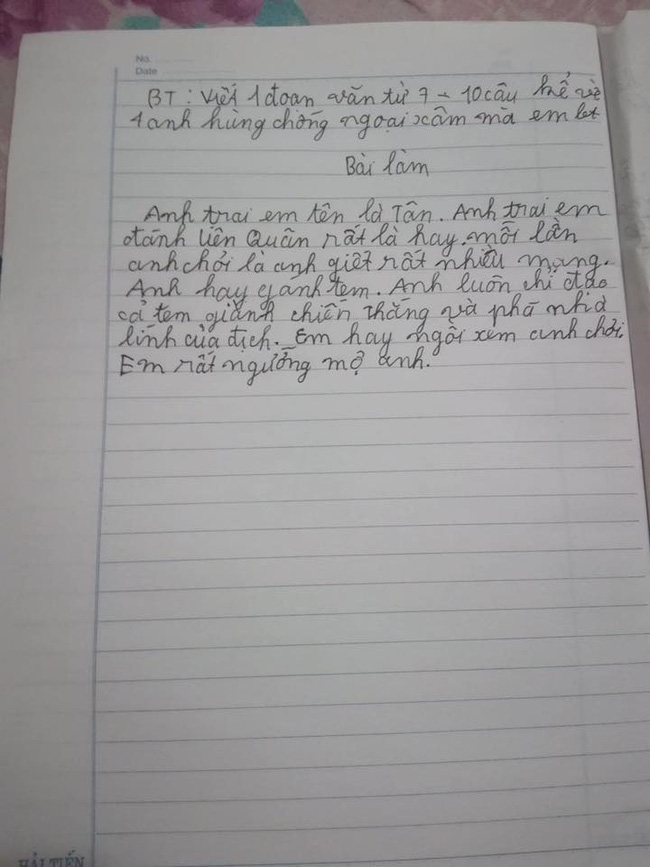 No.
Date
BT: Viết 1 đoạn văn từ 7 - 10 câu kể về
1 anh hùng chống ngoại xâm mà em bết
Bài làm
Anh trai em tên là Tân. Anh trai em
đánh liên Quân rất là hay. mỗi lần
anh chơi là anh giết rất nhiều mạng.
Anh hay ganh tem. Anh luôn chỉ đạo
cả tem giành chiến thắng và phá nhà
lính của địch. Em hay ngồi xem anh chơi.
Em rất ngưỡng mộ anh.
HẢI TIẾN